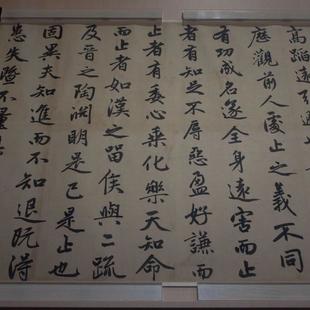 高蹈遠引
歷觀前人處止之義不同
有功成名遂全身遠害而止
者有知足不辱惡盈好謙而
止者有委心乘化樂天知命
而止者如漢之留侯與二疏
及晉之陶淵明是已是止也
固異夫知進而不知退既得
患失暨不量